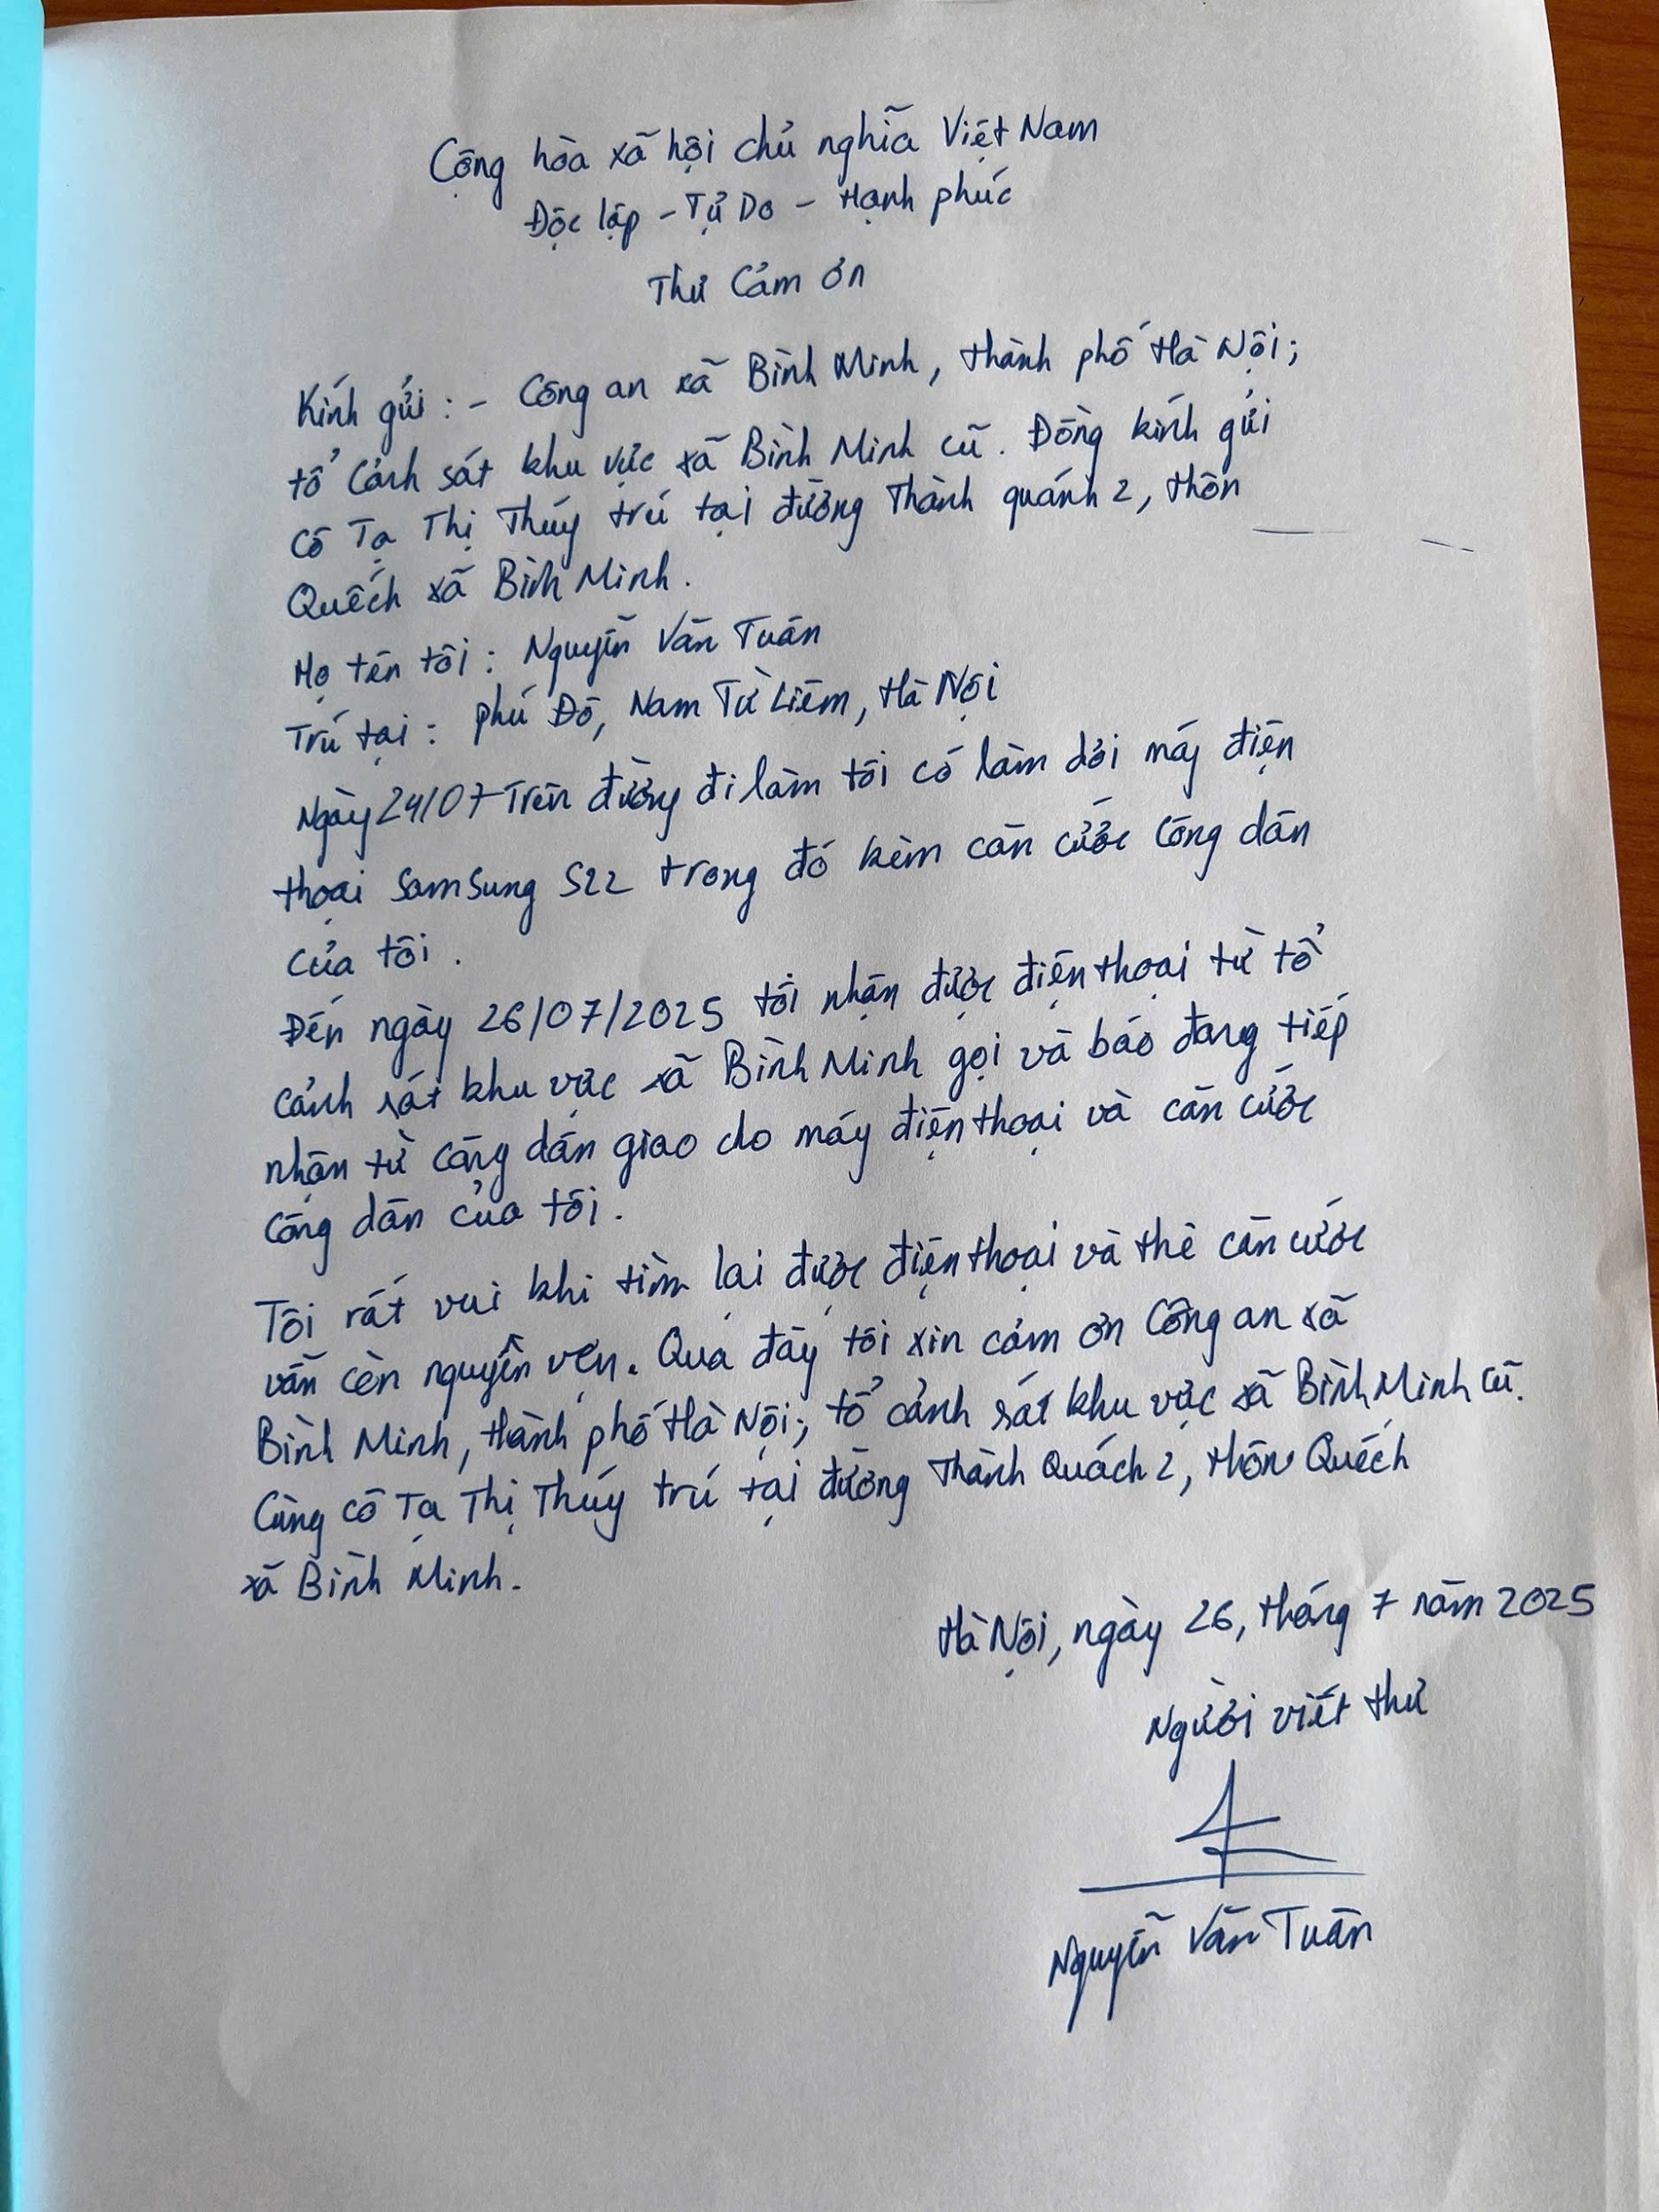 Cộng hòa xã hội chủ nghĩa Việt Nam
Độc lập - Tự Do - Hạnh phúc
Thư Cảm ơn
Kính gửi : - Công an xã Bình Minh, thành phố Hà Nội;
tổ Cảnh sát khu vực xã Bình Minh cũ. Đồng kính gửi
cô Tạ Thị Thúy trú tại đường Thành quánh 2, thôn
Quếch xã Bình Minh.
Họ tên tôi : Nguyễn Văn Tuân
Trú tại : phú Đô, Nam Từ Liêm, Hà Nội
Ngày 24/07 Trên đường đi làm tôi có làm dơi máy điện
thoại SamSung S22 trong đó kèm căn cước Công dân
của tôi.
Đến ngày 26/07/2025 tôi nhận được điện thoại từ tổ
cảnh sát khu vực xã Bình Minh gọi và báo đang tiếp
nhận từ công dân giao do máy điện thoại và căn cước
công dân của tôi.
Tôi rất vui khi tìm lại được điện thoại và thẻ căn cước
vẫn còn nguyên vẹn. Qua đây tôi xin cảm ơn Công an xã
Bình Minh, thành phố Hà Nội; tổ cảnh sát khu vực xã Bình Minh cũ.
Cùng cô Tạ Thị Thúy trú tại đường Thành Quách 2, thôn Quếch
xã Bình Minh.
Hà Nội, ngày 26, tháng 7 năm 2025
Người viết thư
Nguyễn Văn Tuân